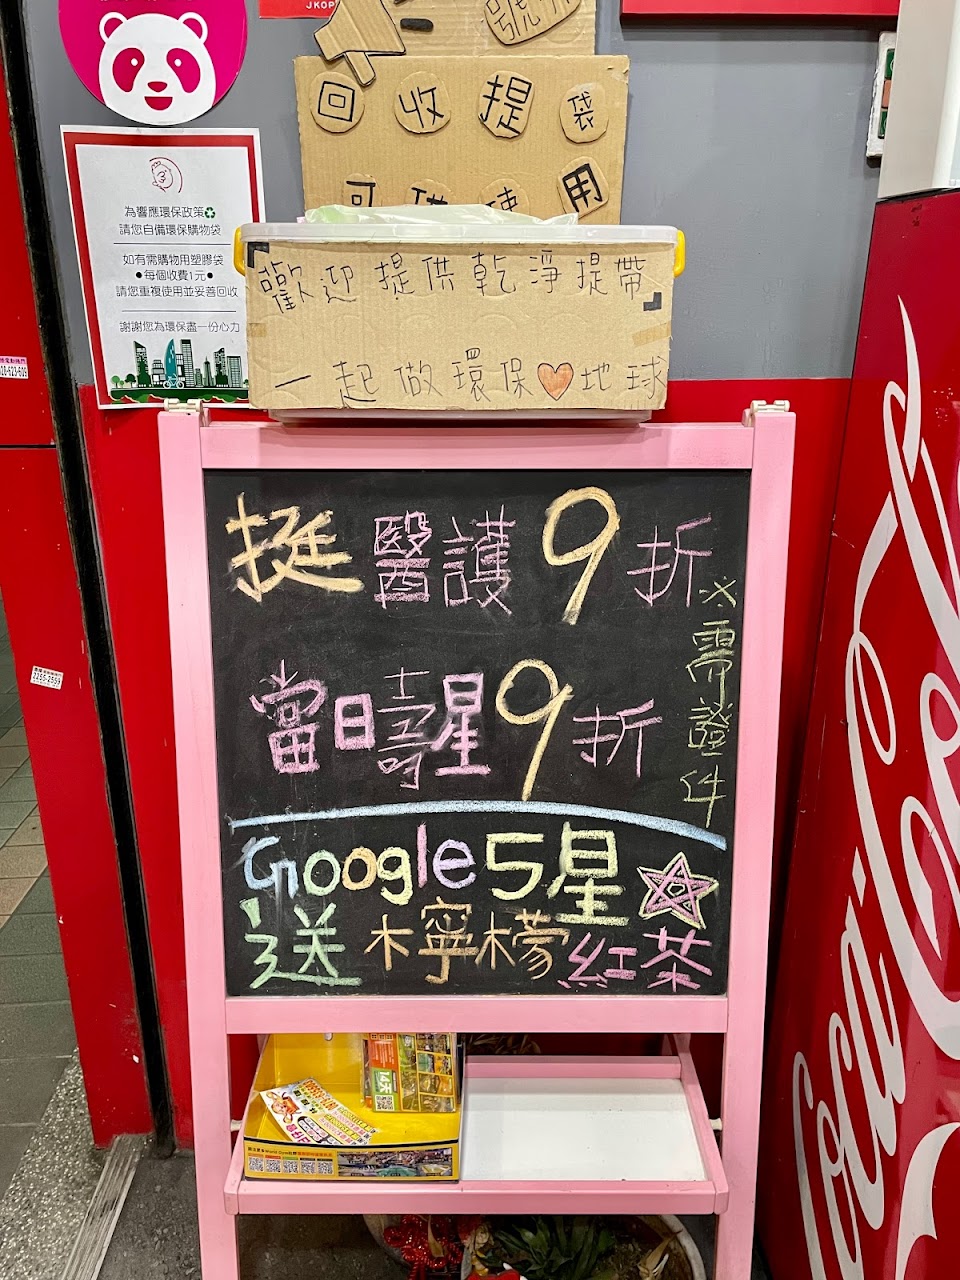 JKOP
回收提袋
用
為響應環保政策
請您自備環保購物袋
如有需購物用塑膠袋
●每個收費1元●
請您重複使用並妥善回收
謝謝您為環保盡一份心力
歡迎提供乾淨提帶
一起做環保♥地球
挺醫護9折
當日壽星9折
※需證件
Google5星
送檸檬紅茶
2255-2559
Coca-Cola